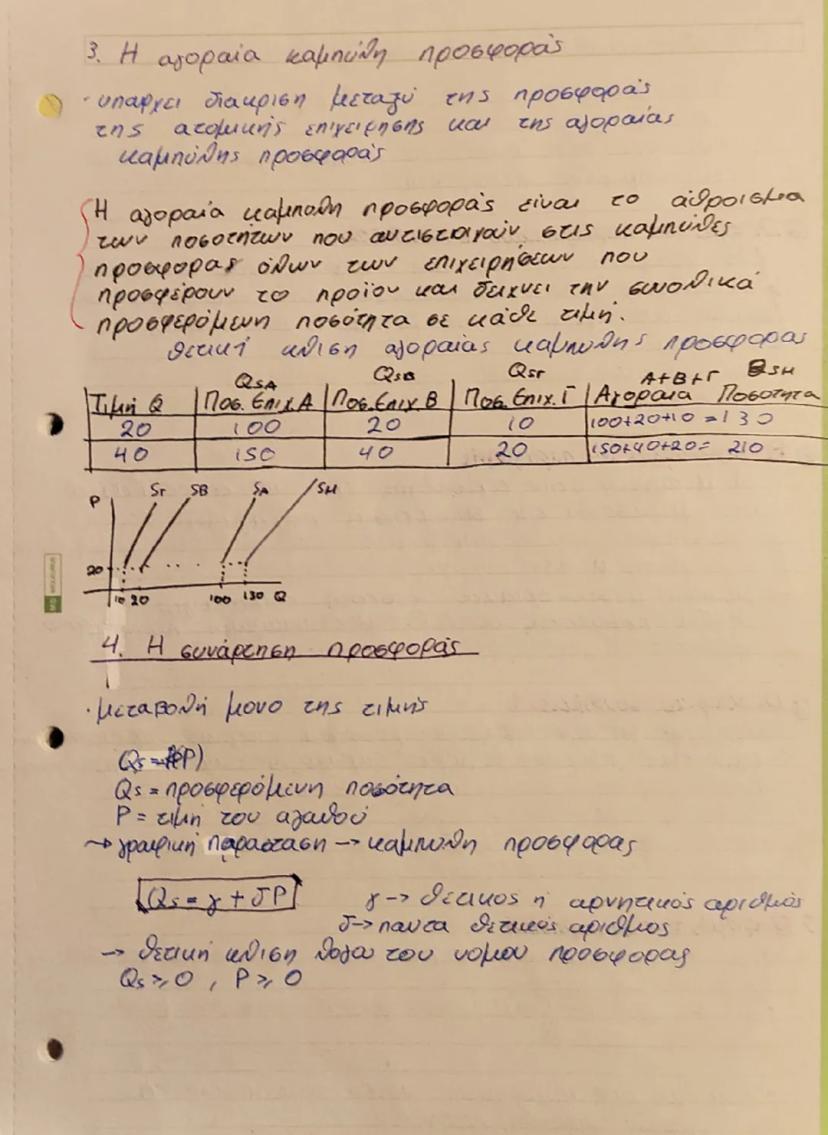 3. Η αγοραία καμπύλη προσφοράς
· υπαρχει διακριση μεταξύ της προσφοράς
της ατομικής επιχείρησης και της αγοραίας
καμπύλης προσφοράς
Η αγοραία καμπύλη προσφοράς είναι το άθροισμα
των ποσοτήτων που αντιστοιχούν στις καμπύλες
προσφοράς όλων των επιχειρήσεων που
προσφέρουν το προϊόν και δείχνει την συνολικά
προσφερόμενη ποσότητα σε κάθε τιμή.
θετική κλίση αγοραίας καμπύλης προσφορας
QSA QSB QSΓ A+B+Γ QSH
Τιμή Q Ποσ. Επιχ. Α Ποσ. Επιχ. Β Ποσ. Επιχ. Γ Αγοραια Ποσοτητα
20 100 20 10 100+20+10 = 130
40 150 40 20 150+40+20= 210
P SΓ SB SA SH
20
10 20 100 130 Q
4. Η συνάρτηση προσφοράς
· μεταβολή μονο της τιμής
Qs = f(P)
Qs = προσφερόμενη ποσότητα
P = τιμή του αγαθού
→ γραφική παρασταση → καμπυλη προσφορας
Qs = γ + δP γ → θετικος ή αρνητικός αριθμός
δ → παντα θετικός αριθμος
→ θετική κλιση λογω του νομου προσφορας
Qs ≥ 0 , P ≥ 0